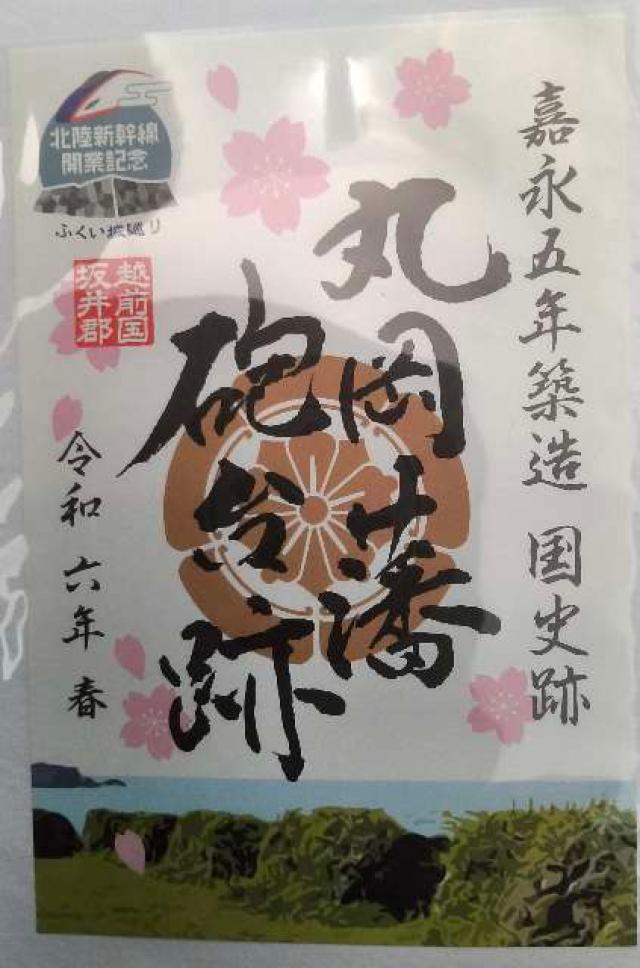 嘉永五年築造 国史跡
丸岡藩
砲台跡
北陸新幹線
開業記念
ふくい城巡り
越前国
坂井郡
令和六年 春